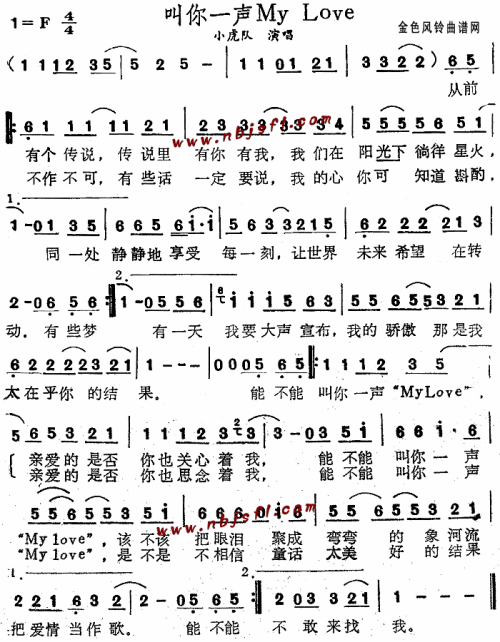 叫你一声My Love
1=F 4/4
小虎队 演唱
金色风铃曲谱网
(1112 35|5 525-|11101 21|3322)65
从前
:61 11 11 21|23 33 33 33|55 5 56 51|
www.nbjsfl.com
有个 传说，传说里 有你 有我，我们在 阳光下 徜徉 星火，
不作 不可，有些话 一定 要说，我的心 你可 知道 斟酌，
1.
1-01 35|665 6i·i|5 63 3215|62 22 213
同一处 静静地 享受 每一刻，让世界 未来 希望 在转
2.
2-06 56:1-05 56|i i i 5 6|55 65 5321
动。有些梦 有一天 我要大声 宣布，我的 骄傲 那是我
622 2223 21|1---|00065:111 2 35
太在乎你 的结果。 能不能 叫你一声 “MyLove”，
5 65 3 21|1112 323|3-035i|66i·6
亲爱的 是否 你也关心 着我， 能 不能 叫你 一声
亲爱的 是否 你也思念 着我， 能 不能 叫你 一声
5 56553|5666 66|0i6|55 53 21
“My love”，该 不该 把眼泪 聚成 弯弯 的 象河流
“My love”，是 不是 不相信 童话 太美 好的 结果
www.nbjsfl.com
1. 2.
2 21 63 2|2-0265:|2203 321|1---
把爱情 当作 歌。 能 不能 不 敢来找 我。